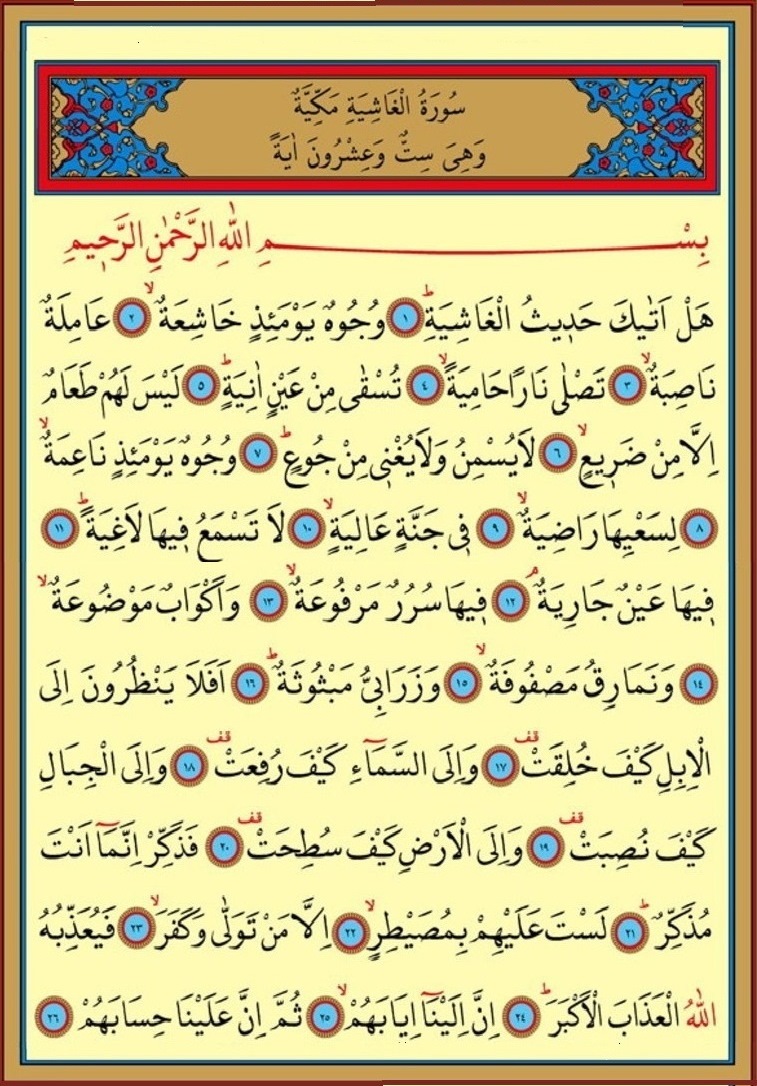 سُورَةُ الْغَاشِيَةِ مَكِّيَّةٌ
وَهِىَ سِتٌّ وَعِشْرُونَ اٰيَةً
بِسْمِ اللّٰهِ الرَّحْمٰنِ الرَّحٖيمِ
هَلْ اَتٰيكَ حَدٖيثُ الْغَاشِيَةِؕ ١ وُجُوهٌ يَوْمَئِذٍ خَاشِعَةٌۙ ٢ عَامِلَةٌ
نَاصِبَةٌۙ ٣ تَصْلٰى نَارًا حَامِيَةًۙ ٤ تُسْقٰى مِنْ عَيْنٍ اٰنِيَةٍؕ ٥ لَيْسَ لَهُمْ طَعَامٌ
اِلَّا مِنْ ضَرٖيعٍۙ ٦ لَا يُسْمِنُ وَلَا يُغْنٖى مِنْ جُوعٍؕ ٧ وُجُوهٌ يَوْمَئِذٍ نَاعِمَةٌۙ
٨ لِسَعْيِهَا رَاضِيَةٌۙ ٩ فٖى جَنَّةٍ عَالِيَةٍۙ ١٠ لَا تَسْمَعُ فٖيهَا لَاغِيَةًؕ ١١
فٖيهَا عَيْنٌ جَارِيَةٌۢ ١٢ فٖيهَا سُرُرٌ مَرْفُوعَةٌۙ ١٣ وَاَكْوَابٌ مَوْضُوعَةٌۙ
١٤ وَنَمَارِقُ مَصْفُوفَةٌۙ ١٥ وَزَرَابِىُّ مَبْثُوثَةٌؕ ١٦ اَفَلَا يَنْظُرُونَ اِلَى
الْاِبِلِ كَيْفَ خُلِقَتْ قف ١٧ وَاِلَى السَّمَٓاءِ كَيْفَ رُفِعَتْ قف ١٨ وَاِلَى الْجِبَالِ
كَيْفَ نُصِبَتْ قف ١٩ وَاِلَى الْاَرْضِ كَيْفَ سُطِحَتْ قف ٢٠ فَذَكِّرْ اِنَّمَٓا اَنْتَ
مُذَكِّرٌؕ ٢١ لَسْتَ عَلَيْهِمْ بِمُصَيْطِرٍۙ ٢٢ اِلَّا مَنْ تَوَلّٰى وَكَفَرَۙ ٢٣ فَيُعَذِّبُهُ
اللّٰهُ الْعَذَابَ الْاَكْبَرَؕ ٢٤ اِنَّ اِلَيْنَٓا اِيَابَهُمْۙ ٢٥ ثُمَّ اِنَّ عَلَيْنَا حِسَابَهُمْ ٢٦